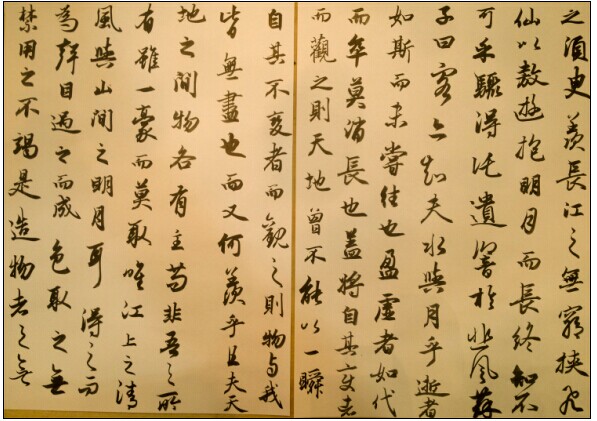 之須臾羨長江之無窮挾飛
仙以敖遊抱明月而長終知不
可乎驟得託遺響於悲風蘇
子曰客亦知夫水與月乎逝者
如斯而未嘗往也盈虛者如代
而卒莫消長也蓋將自其變者
而觀之則天地曾不能以一瞬
自其不變者而觀之則物与我
皆無盡也而又何羨乎且夫天
地之間物各有主苟非吾之所
有雖一豪而莫取唯江上之清
風與山間之明月耳得之而
為聲目遇之而成色取之無
禁用之不竭是造物者之無